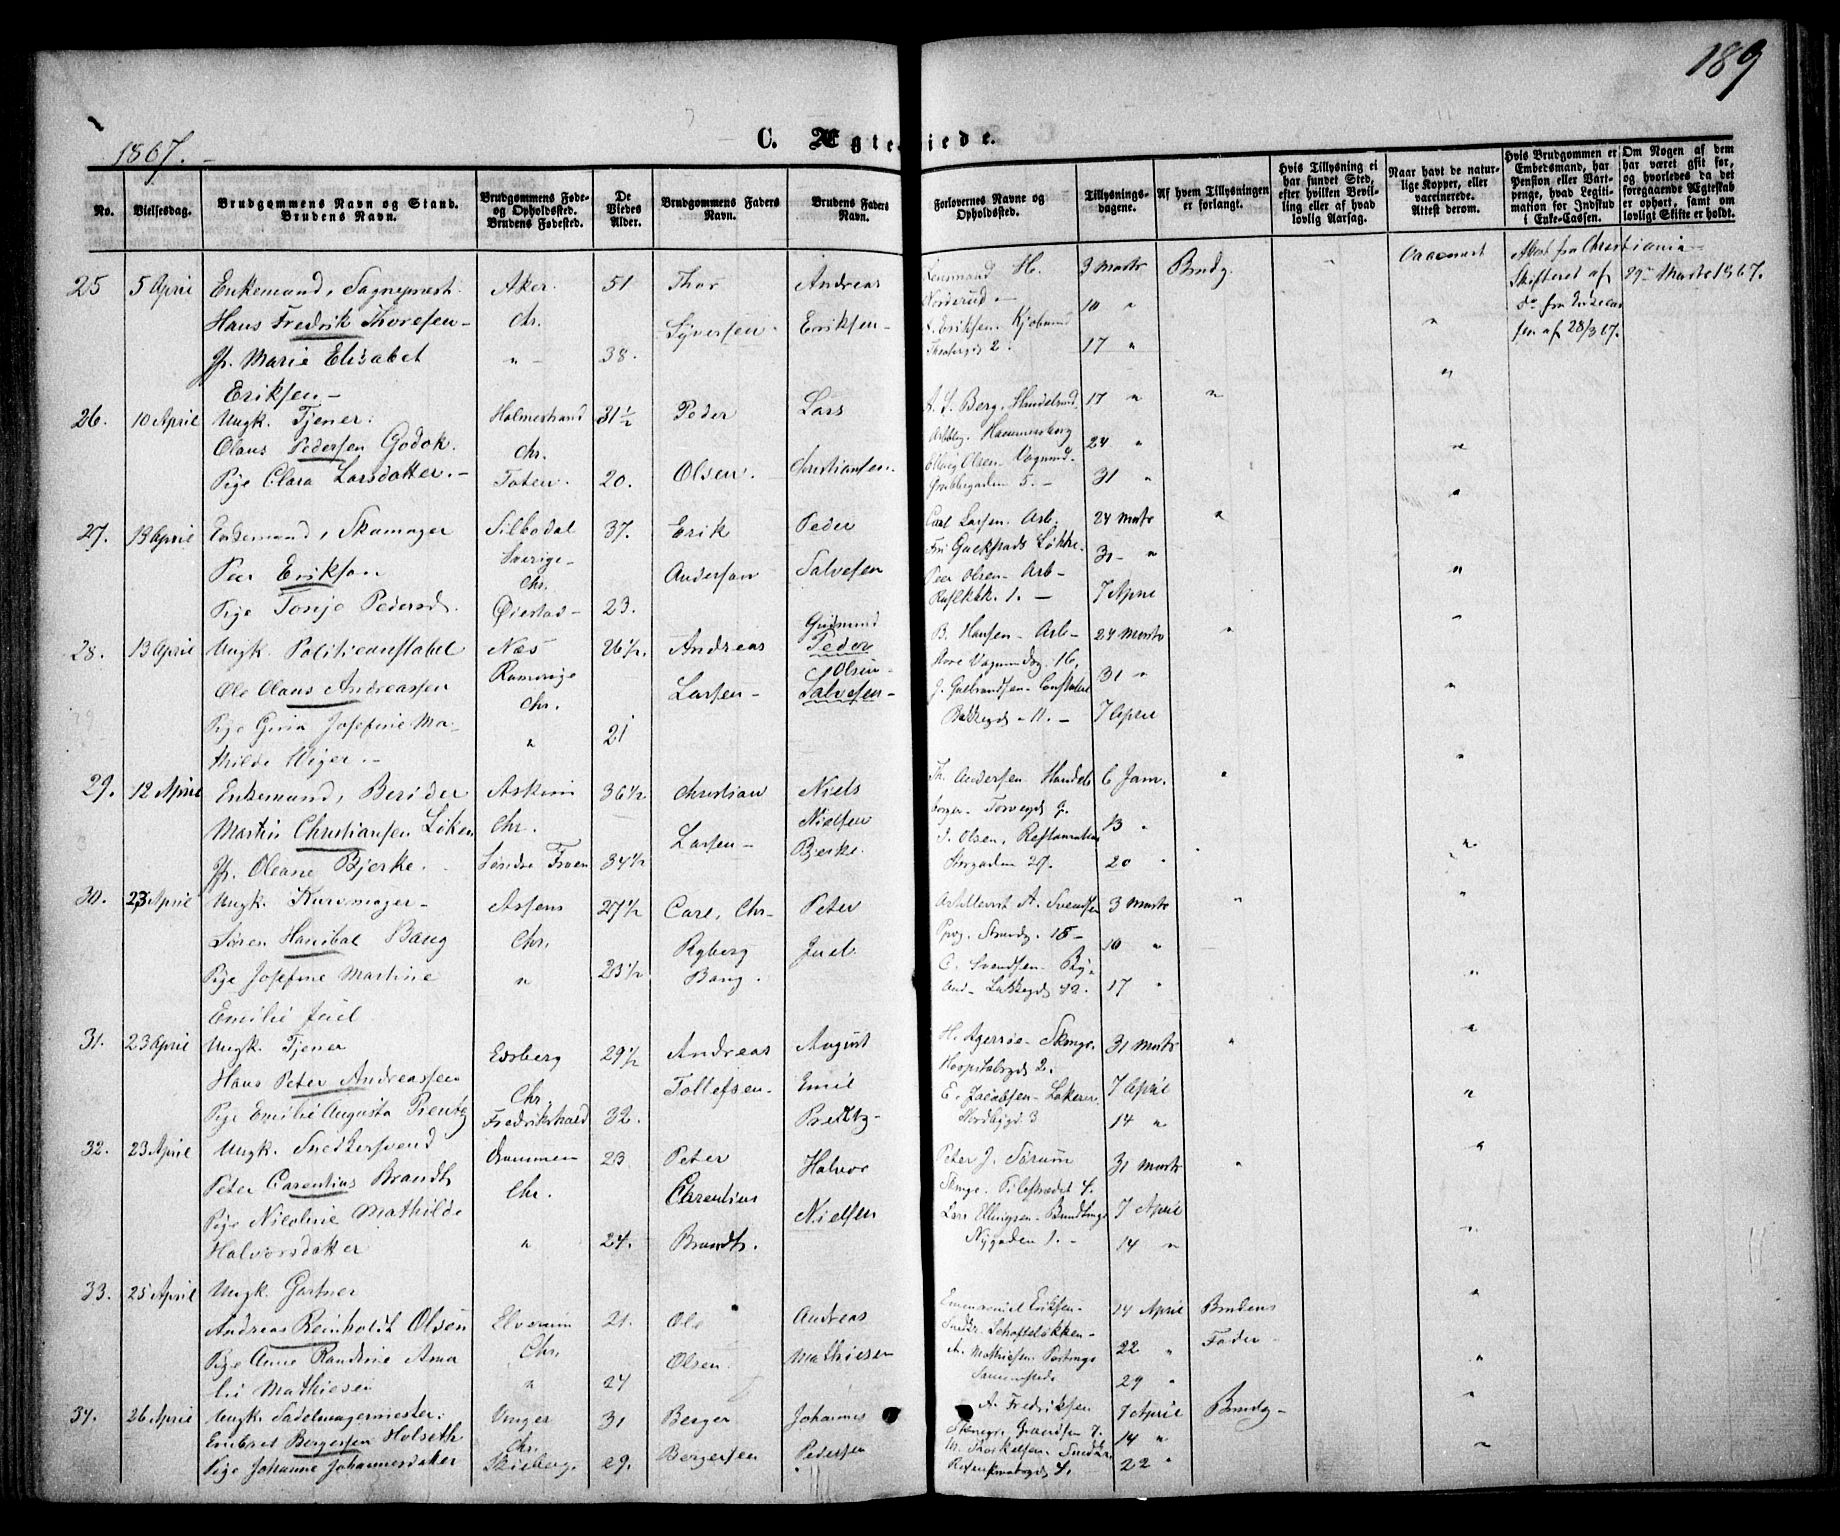 189
1867.
C. Ægteviede.
No.
Vielsesdag.
Brudgommens Navn og Stand.
Brudens Navn.
Brudgommens Føde-
og Opholdssted.
Brudens Fødested.
De
Viedes
Alder.
Brudgommens Faders
Navn.
Brudens Faders
Navn.
Forlovernes Navne og
Opholdssted.
Tillysnings-
dagene.
Af hvem Tillysningen
er forlangt.
Hvis Tillysning ei
har fundet Sted,
efter hvilken Bevil-
ling eller af hvad
lovlig Aarsag.
Naar havt de natur-
lige Kopper, eller
vaccinerede.
Attest derom.
Hvis Brudgommen er
Embedsmand, har
Pension eller Vart-
penge, hvad Legiti-
mation for Indskud
i Enke-Cassen.
Om Nogen af dem
har været gift før,
og hvorledes da det
foregaaende Ægteskab
er ophørt, samt om
lovligt Skifte er holdt.
25 5 April Enkemand, Sagnepræst. Aker. 51 Thor Andreas Lensmand H. 3 Marts Brudg. " Vaccineret Attest fra Christiania
Hans Fredrik Thoresen Chr. Syversen Eriksen Norderud 10 " Skifteret af 29 Marts 1867.
Eriksen 28/3 67.
Jfr. Marie Elisabet " 38. 2. 17 "
Eriksen
26. 10 April Ungk. Tjener. Holmestrand 31½ Peder Lars Berg. 17 " "
Olaus Pedersen Godok. Chr. Hammersborg 24 "
Pige Clara Larsdatter. Toten. 20. Olsen. Christiansen. Olsen Vognmd. 31 "
Grubbegaden 5.
27. 13 April Enkemand, Skomager Silbodal 37. Erik Peder Carl Larsen. Arb. 24 Marts "
Peer Eriksson Sverige Anderson Salvesen Løkke. 31 "
Chr. Peer Olsen Arb
Pige Tonje Pedersd. Øiestad 23. 1. 7 April
28. 13 April Ungk. Politiconstabel Næs 26½. Andreas Gudmund Peder B. Hansen Arb 24 Marts "
Ole Olaus Andreassen Romerige Larsen Olsen Salvesen Store Vognmdsg. 16, 31 "
Chr. J. Gulbrandsen Constabel
Pige Gina Josefine Ma- " 21 Bakkegd. 11. 7 April
thilde Wiger.
29. 12 April Enkemand, Berider Askim 36½ Christian Niels Th. Andersen Handels 6 Jan. "
Martin Christiansen Løken Chr. Larsen Nielsen borger Torvegd. 7. 13 "
Jfr. Oleane Bjerke. Søndre Froen 34½ Bjerke. J. Olsen, Restauratør
Storgaden 27. 20 "
30. 23 April Ungk. Kurvmager Assens 27½ Carl, Chr. Peter A. Svendsen 3 Marts "
Søren Hanibal Bang Chr. Ryberg Juel. 15 10 "
Pige Josefine Martine " 23½ Bang. C. Svendsen 17 "
Emilie Juel
31. 23 April Ungk. Tjener Edsberg 29½ Andreas August H. Agersøe 31 Marts "
Hans Peter Andreassen Chr. Tollefsen. Emil Hospitalsgd. 2. 7 April
Pige Emilie Augusta Preutz Fredrikshald 32. Preutz E. Jacobsen 3 14 "
32. 23 April Ungk. Snedkersvend Drammen 23 Peter Halvor Peter J. Sørum 31 Marts "
Peter Carentius Brandt Chr. Chrentius Nielsen Pilestrædet 4. 7 April
Pige Nicoline Mathilde Lars Ellingsen
Halvorsdatter " 24. Brandt. Nygaden 1. 14 "
33. 25 April Ungk. Gartner
Andreas Reinholdt Olsen Elverum 21. Ole Andreas Emmanuel Eriksen 14 April Brudens
Pige Anne Randine Ama Chr. Olsen. Mathiesen A. Mathiesen 22 " Fader
lie Mathiesen " 24 29 "
34. 26 April Ungk. Sadelmagermester. Vinger 31 Berger Johannes A. Fredriksen 7 April Brudg
Embret Bergersen Holseth Chr. 7. 14 "
Pige Johanne Johannesdatter Skieberg. 29. Bergersen Pedersen M. Thorkelsen. Snedkr. 22 "
4.